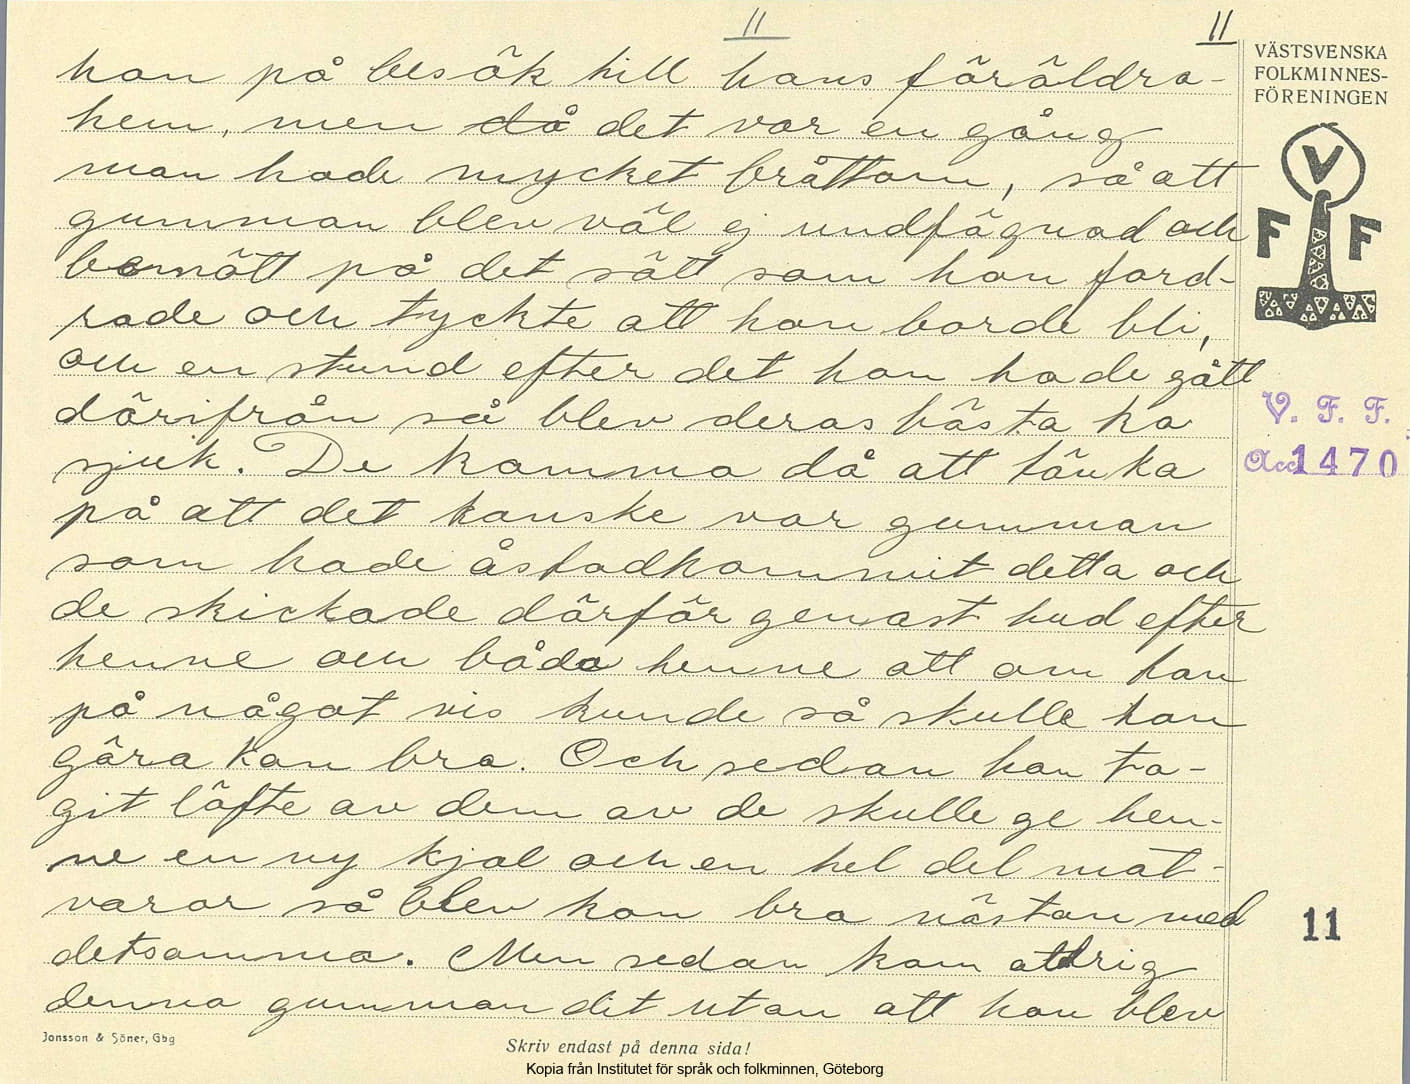 11
11
VÄSTSVENSKA
FOLKMINNES-
FÖRENINGEN
V
F F
hon på besök till hans föräldra-
hem, men då det var en gång
man hade mycket bråttom, så att
gumman blev väl ej undfägnad och
bemött på det sätt som hon ford-
rade och tyckte att hon borde bli,
och en stund efter det hon hade gått
därifrån så blev deras bästa ko
sjuk. De komma då att tänka
på att det kanske var gumman
som hade åstadkommit detta och
de skickade därför genast bud efter
henne och bådo henne att om hon
på något vis kunde så skulle hon
göra kon bra. Och sedan hon ta-
git löfte av dem av de skulle ge hen-
ne en ny kjol och en hel del mat-
varor så blev kon bra nästan med
detsamma. Men sedan kom aldrig
denna gumman dit utan att hon blev
V. F. F.
Acc 1470
11
Jonsson & Söner, Gbg
Skriv endast på denna sida!
Kopia från Institutet för språk och folkminnen, Göteborg